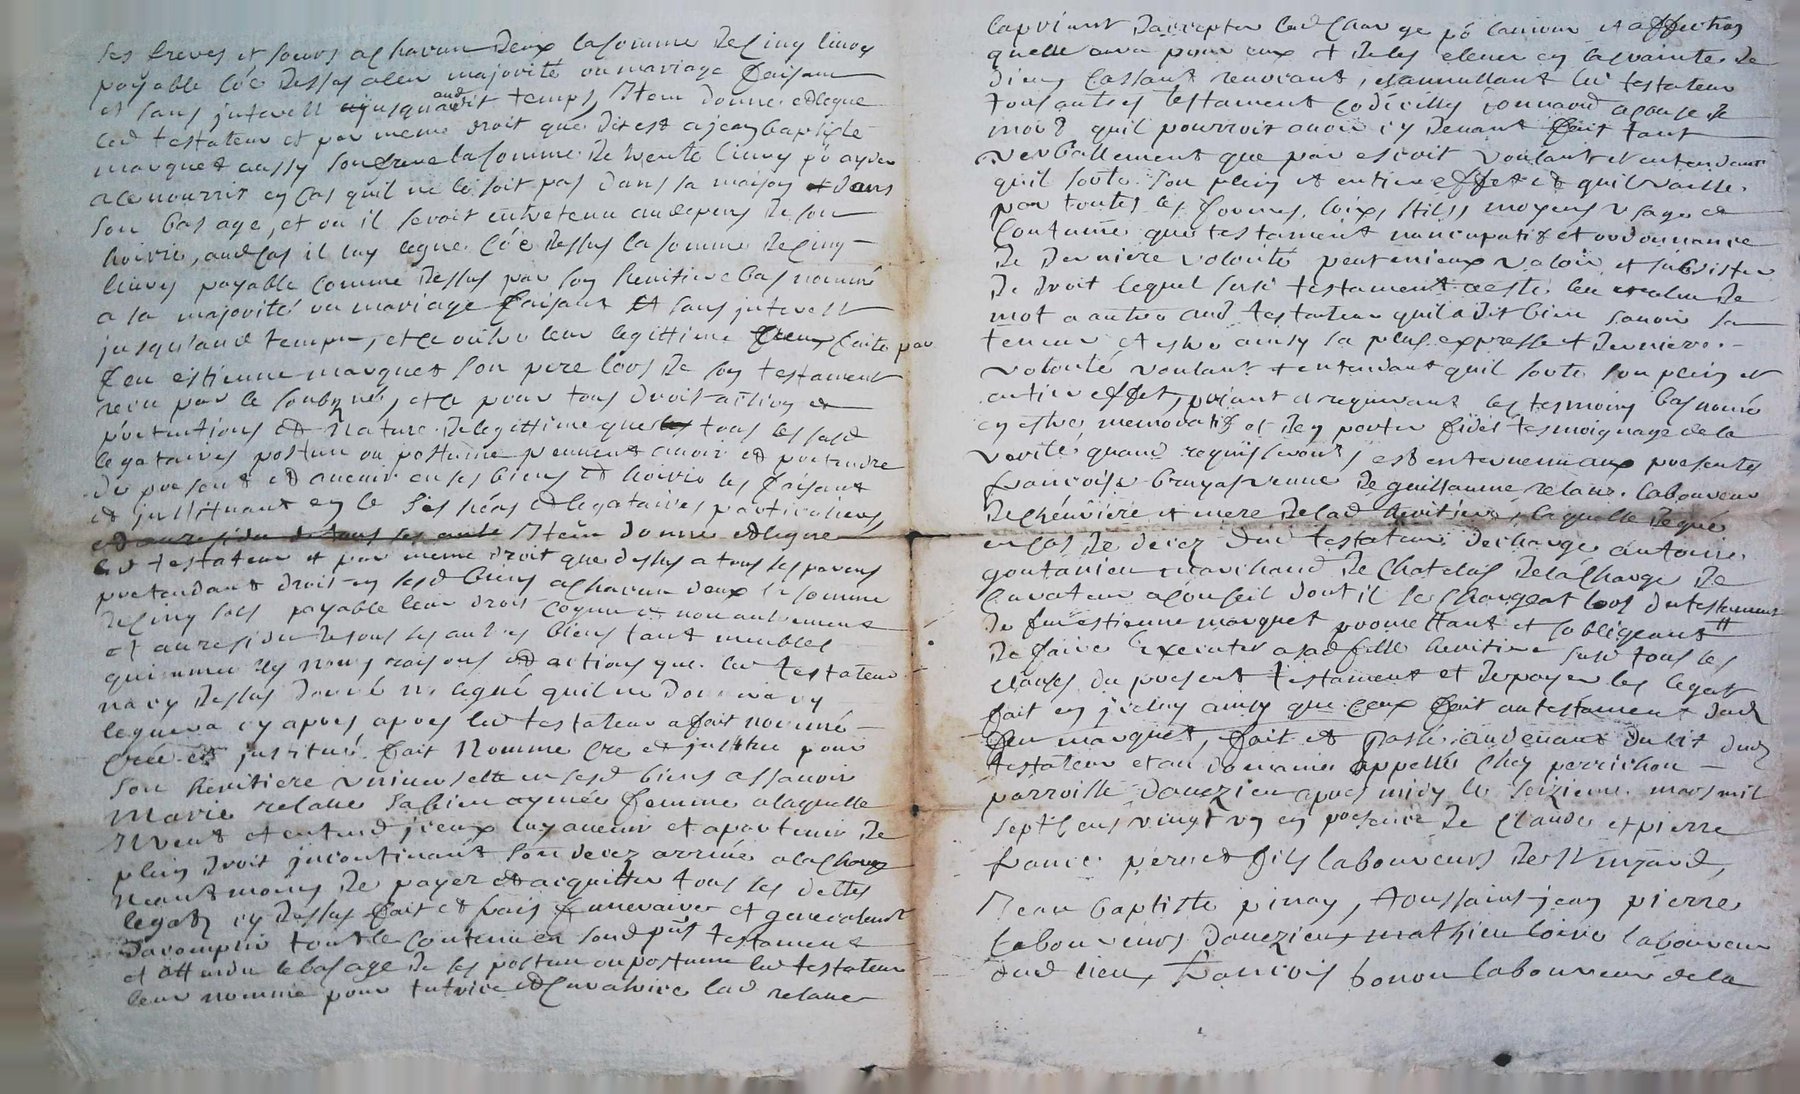 ses freres et soeurs a chacun deux la somme de cinq livres
payable côe dessus a leur majorité ou mariage faisant
et sans interest jusquaud temps, Item donne et legue
led testateur et par meme droit que dit est a jean baptiste
marquet aussy son frere la somme de trente livres po ayder
a le nourrir en cas quil ne le soit pas dans sa maison et dans
son bas age, et ou il seroit entretenu au depens de son
hoirie, aud cas il luy legue côe dessus la somme de cinq
livres payable comme dessus par son heritiere bas nommé
a sa majorité ou mariage faisant et sans interest
jusquaud temps, et ce outre leur legittime faite par
feu estienne marquet son pere lors de son testament
receu par le soubné, et ce pour tous droit action et
pretentions et nature de legittime que tous les susd
legataires postum ou postume peuvent avoir et pretendre
de present et avenir en ses biens et hoirie les faisant
et instituant en ce ses heres et legataires particuliers,
et au residu de tous ses autre Item donne et legue
led testateur et par meme droit que dessus a tous ses parens
pretendant droit en sesd biens a chacun deux la somme
de cinq sols payable leur droit cognu et non autrement
et au residu de tous ses autres biens tant meubles
quimmeubles noms raisons et actions que led testateur
na cy dessus donné ni legué quil ne donnera ny
leguera cy apres apres led testateur a fait nommé
créé et institué fait nomme cre et institue pour
son heritiere universelle en sesd biens assavoir
Marie relave sa bien aymée femme a laquelle
Il veut et entend jceux luy avenir et apartenir de
plein droit jncontinant son decez arrivé a la charge
neantmoins de payer et acquitter tous ses dettes
legatz cy dessus fait et frais funeraires et generalemt
dacomplir tout le contenu en sond pñt testament
et attendu le bas age de ses postum ou postume led testateur
leur nomme pour tutrice et curatrice lad relave
la priant daccepter lad charge po lamour et affection
quelle aura pour eux et de les elever en la crainte de
dieu, cassant revocant, et annullant led testateur
tous autres testament codicilles donnaõn a cause de
mort quil pourroit avoir cy devant fait tant
verballement que par escrit voulant et entendant
quil sorte son plein et entier effet et quil vaille
par toutes les formes, loix, stils, moyens usage et
coutume que testament noncupatif et ordonnance
de derniere volonté peut mieux valoir et subsister
de droit lequel susd testament a esté leu et relu de
mot a autre aud testateur quil a dit bien savoir sa
teneur et estre ainsy sa plus expresse et derniere
volonté voulant et entendant quil sorte son plein et
entier effet, priant et requerant les tesmoins bas nomé
en estre memoratif et den porter fidel tesmoignage de la
verité quand requis seront, est entervenu aux presentes
françoise bruyas veuve de guillaume relave laboureur
de chenviere et mere de lad heritiere, laquelle de gré
en cas de decez dud testateur decharge antoine
goutanieu marchand de chatelas de la charge de
curateur a conseil dont il se chargeat lors du testament
de feu estienne marquet promettant et sobligeant
de faire executer a sad fille heritiere susd tous les
clauses du present testament et de payer les legatz
fait en jceluy ainsy que ceux fait au testament dud
feu marquet, fait et passé au devant du lit dud
testateur et au domaine appellé chez perrichon
parroisse davezieu apres midy le seizieme mars mil
sept cens vingt un en presence de claude et pierre
france pere et fils laboureurs de St
Jean baptiste pinay, toussaint jean pierre
laboureurs davezieu mathieu loire laboureur
dud lieu, François bonou laboureur de la